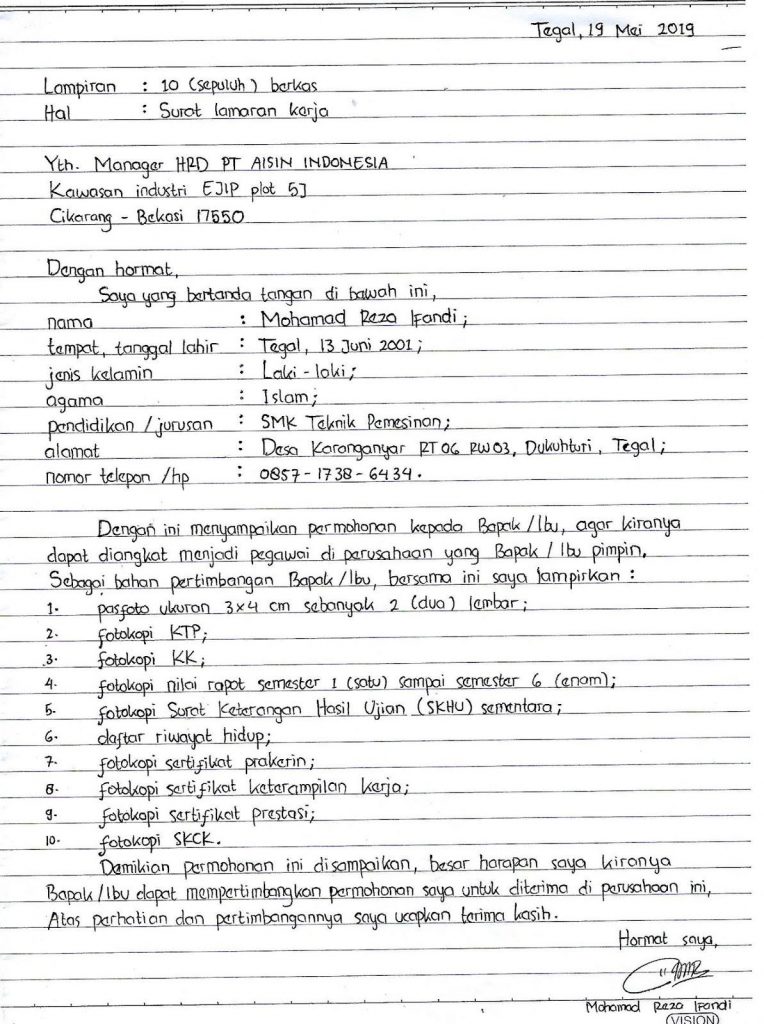 Tegal, 19 Mei 2019
Lampiran : 10 (sepuluh) berkas
Hal : Surat lamaran kerja
Yth. Manager HRD PT AISIN INDONESIA
Kawasan industri EJIP plot 5J
Cikarang - Bekasi 17550
Dengan hormat,
Saya yang bertanda tangan di bawah ini,
nama : Mohamad Reza Ifandi;
tempat, tanggal lahir : Tegal, 13 Juni 2001;
jenis kelamin : Laki-laki;
agama : Islam;
pendidikan / jurusan : SMK Teknik Pemesinan;
alamat : Desa Karanganyar RT 06 RW 03, Dukuhturi, Tegal;
nomor telepon /hp : 0857-1738-6434.
Dengan ini menyampaikan permohonan kepada Bapak/Ibu, agar kiranya
dapat diangkat menjadi pegawai di perusahaan yang Bapak / Ibu pimpin.
Sebagai bahan pertimbangan Bapak/Ibu, bersama ini saya lampirkan :
1. pasfoto ukuran 3x4 cm sebanyak 2 (dua) lembar;
2. fotokopi KTP;
3. fotokopi KK;
4. fotokopi nilai rapot semester 1 (satu) sampai semester 6 (enam);
5. fotokopi Surat Keterangan Hasil Ujian (SKHU) sementara;
6. daftar riwayat hidup;
7. fotokopi sertifikat prakerin;
8. fotokopi sertifikat keterampilan kerja;
9. fotokopi sertifikat prestasi;
10. fotokopi SKCK.
Demikian permohonan ini disampaikan, besar harapan saya kiranya
Bapak/Ibu dapat mempertimbangkan permohonan saya untuk diterima di perusahaan ini,
Atas perhatian dan pertimbangannya saya ucapkan terima kasih.
Hormat saya,
Mohamad Reza Ifandi
VISION